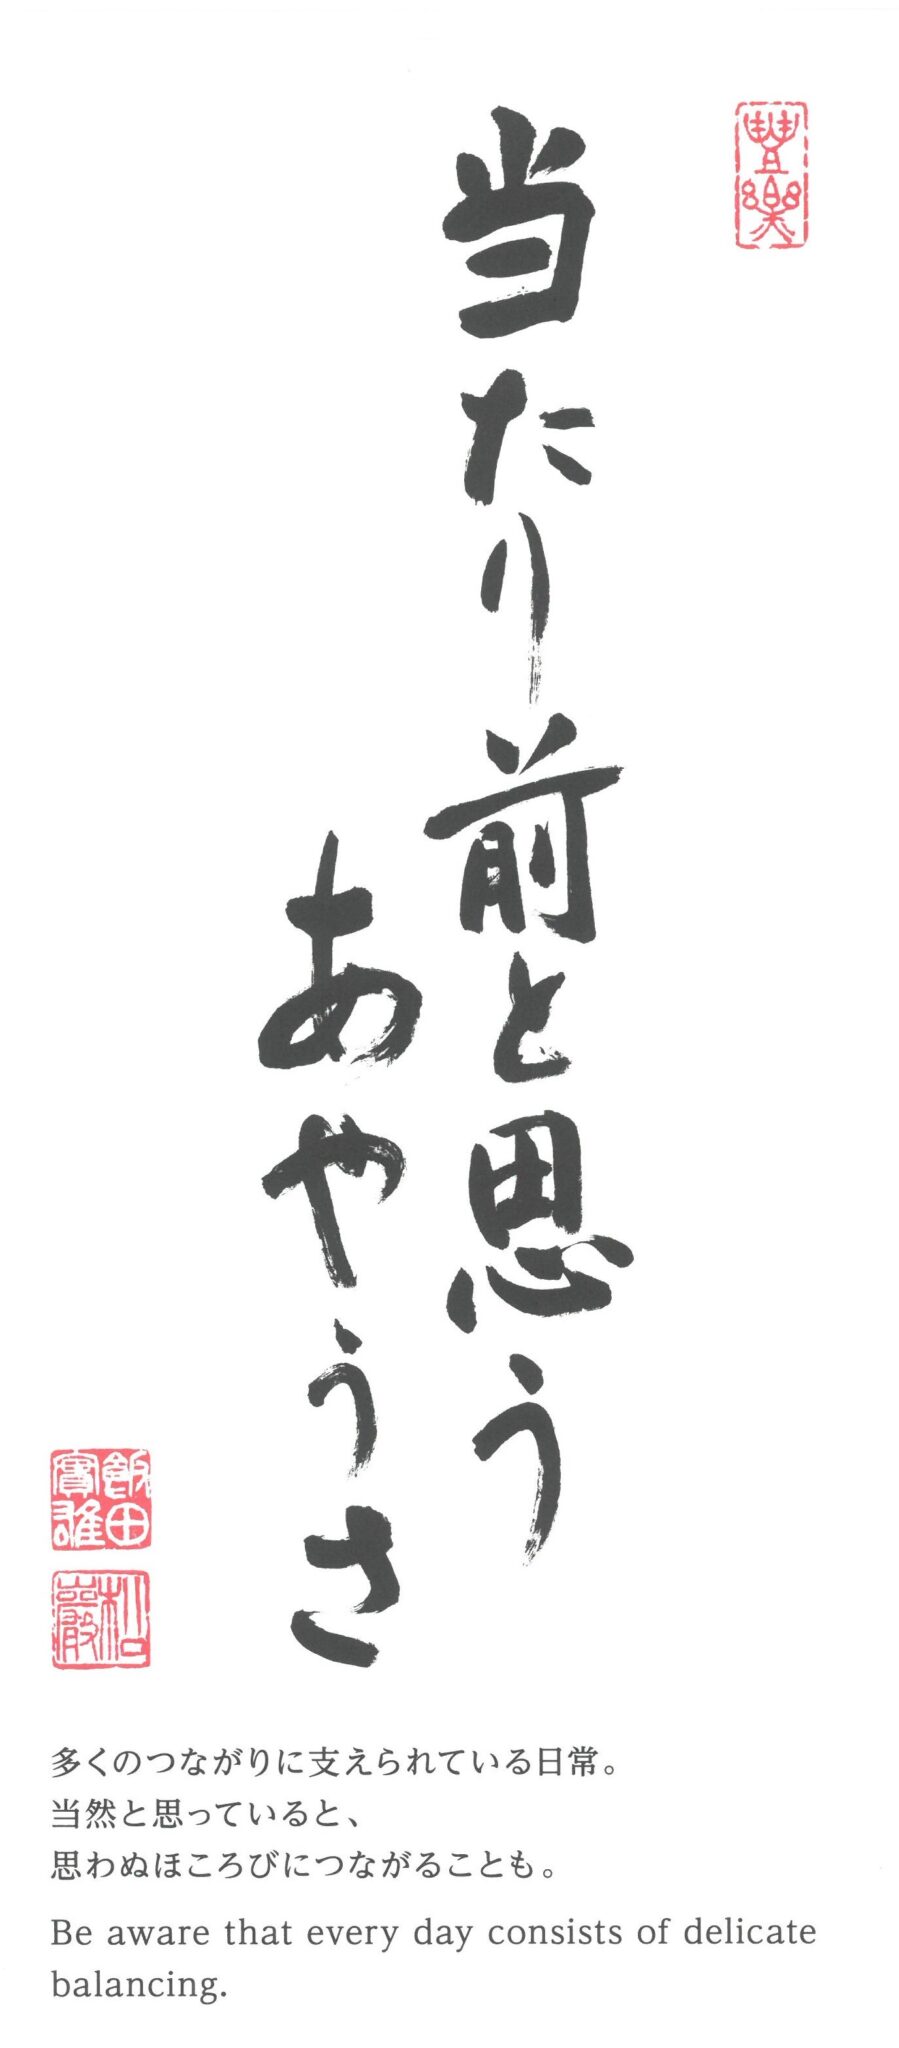 豊楽
当たり前と思う
あやうさ
飯田
實雄
和
巖
多くのつながりに支えられている日常。
当然と思っていると、
思わぬほころびにつながることも。
Be aware that every day consists of delicate
balancing.